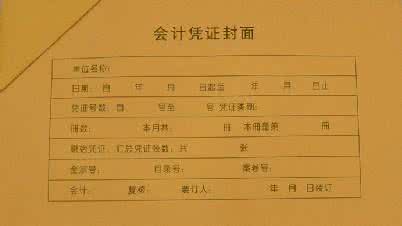 会计凭证封面
单位名称:
日期: 自 年 月 日起至 年 月 日止
凭证号数: 自 号至 号 凭证类别:
册数: 本月共 册 本册是第 册
原始凭证、汇总凭证张数: 共 张
全宗号: 目录号: 案卷号:
会计: 复核: 装订人: 年 月 日装订